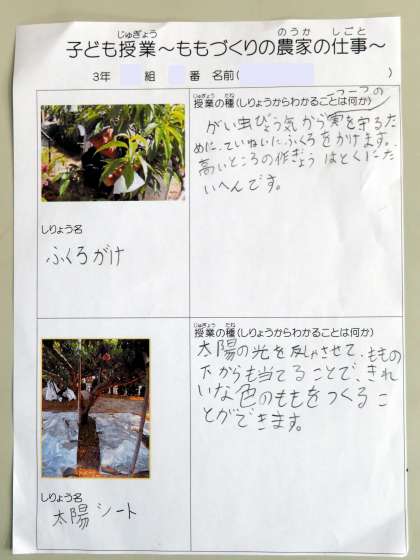 じゅぎょう のうか しごと
子ども授業～ももづくりの農家の仕事～
3年 組 番 名前( )
じゅぎょう たね
授業の種(しりょうからわかることは何か)
がい虫びょう気から実を守るた
めに、ていねいにふくろをかけます。
高いところの作ぎょうはとくにた
いへんです。
しりょう名
ふくろがけ
じゅぎょう たね
授業の種(しりょうからわかることは何か)
太陽の光を反しゃさせて、ももの
下からも当てることで、きれ
いな色のももをつくるこ
とができます。
しりょう名
太陽シート